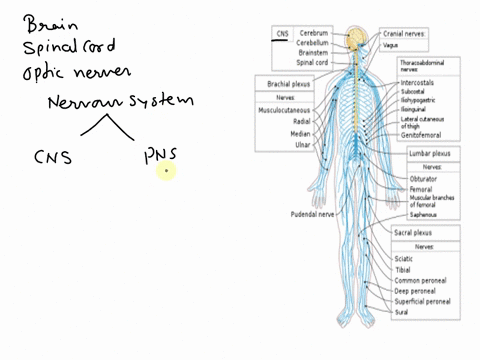 Brain
Spinal cord
Optic nerver
Nervour system
CNS
PNS
CNS
Cerebrum
Cerebellum
Brainstem
Spinal cord
Cranial nerves:
Vagus
Thoracoabdominal
nerves
Intercostals
Subcostal
Iliohypogastric
Ilioinguinal
Lateral cutaneous
of thigh
Genitofemoral
Brachial plexus
Nerves:
Musculocutaneous
Radial
Median
Ulnar
Lumbar plexus
Nerves:
Obturator
Femoral
Muscular branches
of femoral
Saphenous
Pudendal nerve
Sacral plexus
Nerves:
Sciatic
Tibial
Common peroneal
Deep peroneal
Superficial peroneal
Sural